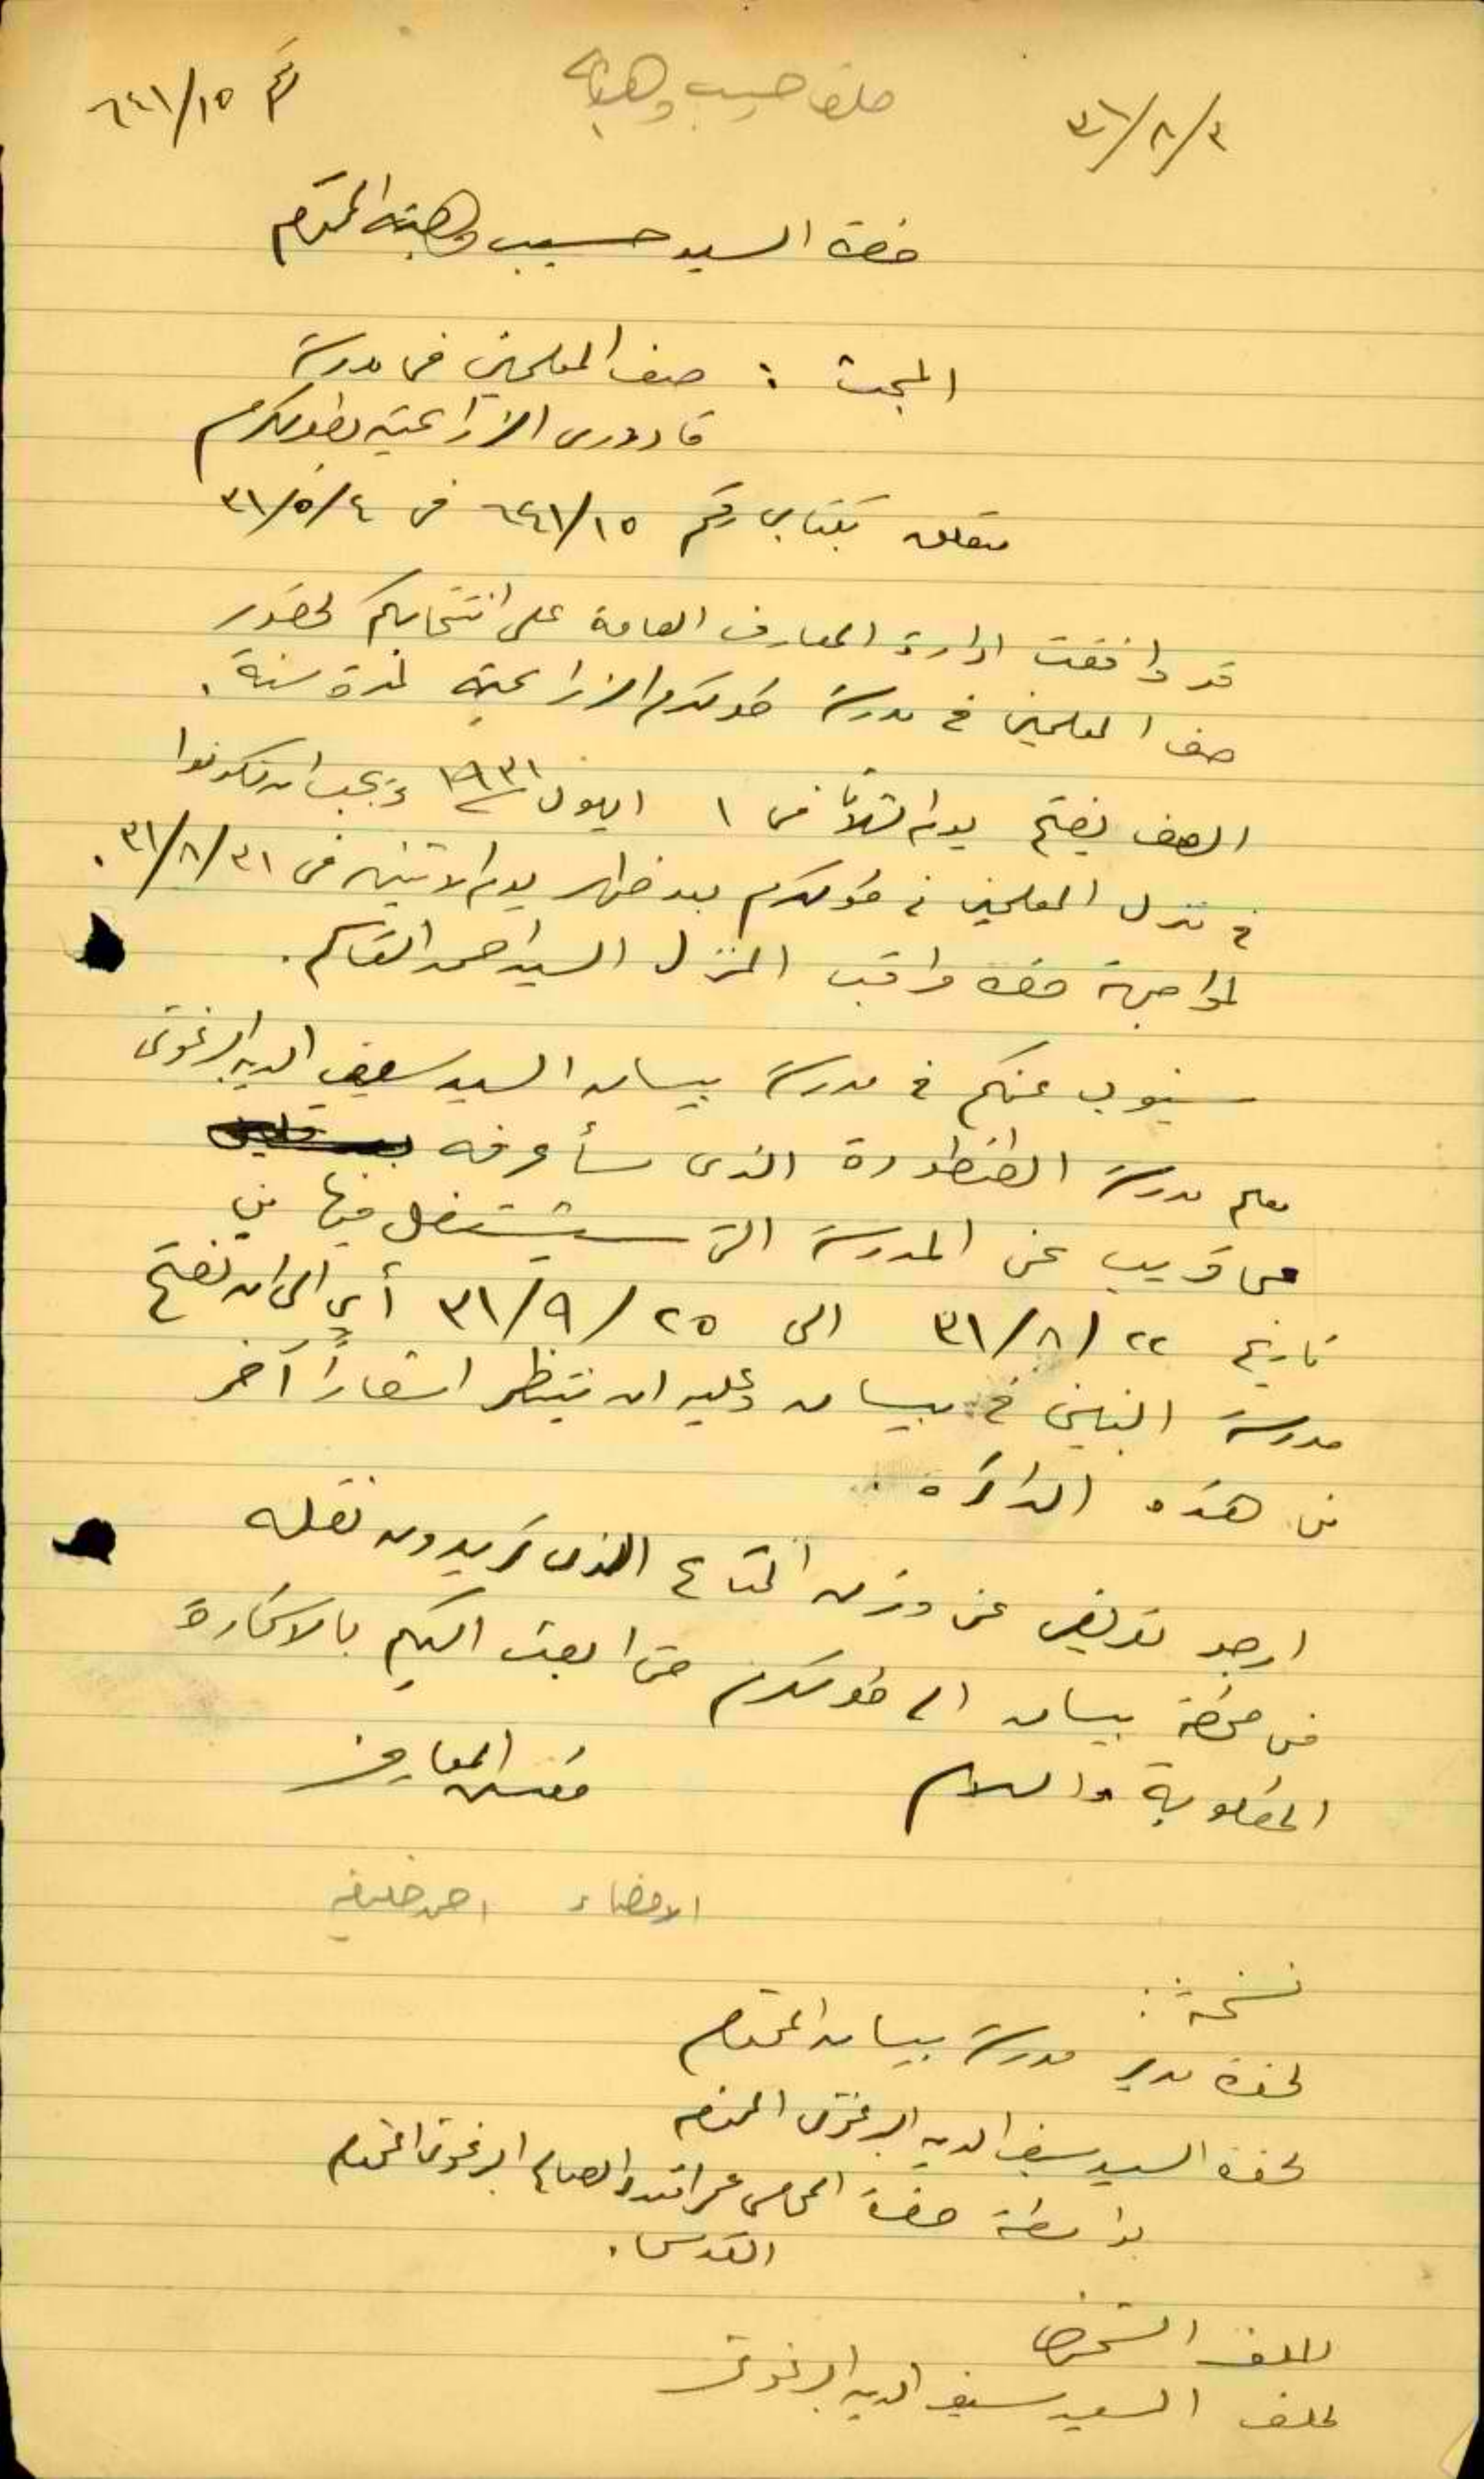 ملف حسيب وهبه
رقم ٦٤١/١٥
٣١/٨/٣
حضرة السيد حسيب وهبه المحترم
المبحث : صف المعلمين في مدرسة
قادوري الزراعية بطولكرم
متعلق بكتابي رقم ٦٤١/١٥ في ٣١/٥/٤
قد وافقت ادارة المعارف العامة على انتخابكم لحضور
صف المعلمين في مدرسة طولكرم الزراعية لمدة سنة .
الصف يفتح يوم الثلاثا في ١ ايلول ١٩٣١ ويجب ان تكونوا
في نزل المعلمين في طولكرم بعد ظهر يوم الاثنين في ٣١/٨/٣١ .
لمواجهة حضرة مراقب المنزل السيد احمد القاسم .
سينوب عنكم في مدرسة بيسان السيد سيف الدين البرغوثي
معلم مدرسة الطنطورة الذي سأعرفه
عما قريب عن المدرسة التي سيشتغل فيها من
تاريخ ٣١/٨/٢٢ الى ٣١/٩/٢٥ أي الى ان تفتح
مدرسة البنين في بيسان وعليه ان ينتظر اشعاراً آخر
من هذه الدائرة .
ارجو تعريفي عن وزن المتاع الذي تريدون نقله
من محطة بيسان الى طولكرم حتى ابعث اليكم بالاستمارة
المطلوبة والسلام
مفتش المعارف
الامضاء احمد خليفه
نسخة :
لحضرة مدير مدرسة بيسان المحترم
لحضرة السيد سيف الدين البرغوثي المحترم
بواسطة حضرة المحامي عمر افندي الصالح البرغوثي المحترم
القدس .
للملف الشخصي
لملف السيد سيف الدين البرغوثي